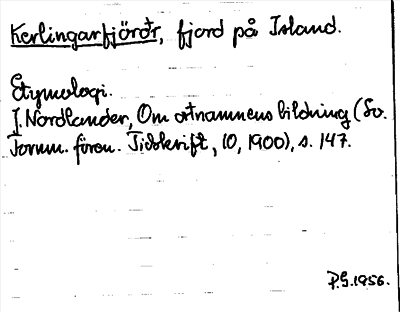 Kerlingarfjörðr, fjord på Island.
Etymologi.
J. Nordlander, Om ortnamnens bildning (Sv.
Fornm. fören. Tidskrift, 10, 1900), s. 147.
P.G.1956.